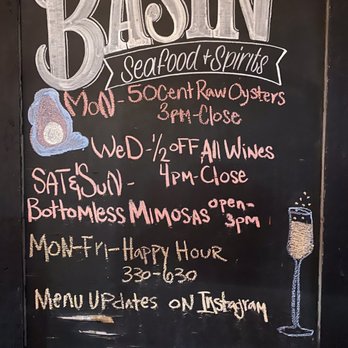 BASIN
Seafood + Spirits
MON - 50 Cent Raw Oysters
3pm - Close
WED - 1/2 OFF All Wines
4pm - Close
SAT & SUN -
Bottomless Mimosas open - 3pm
MON - Fri - Happy Hour
330 - 630
Menu Updates on Instagram